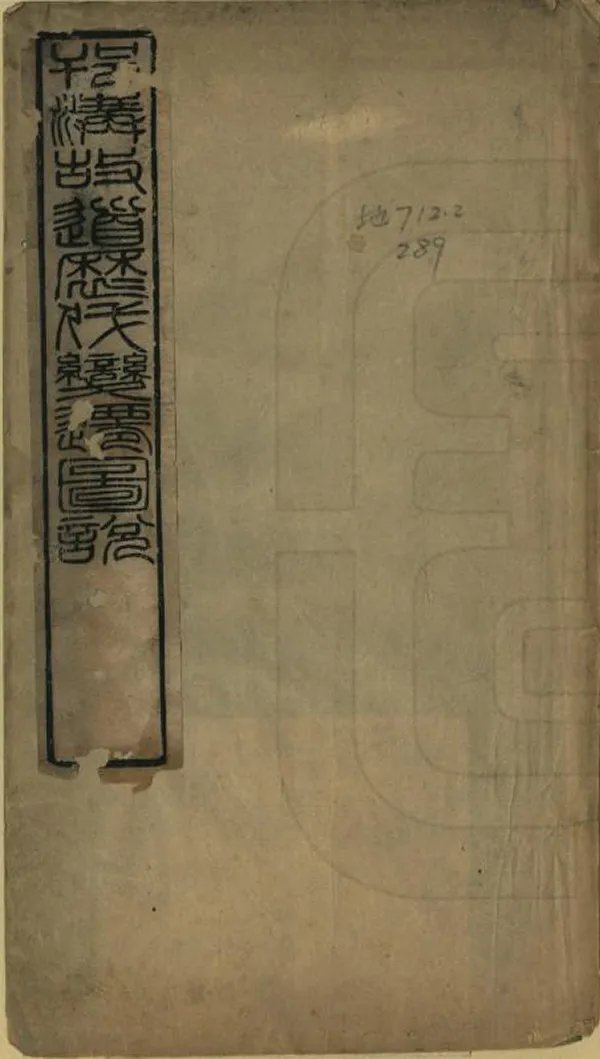 邗溝故道歷代變遷圖說
地712.2
289